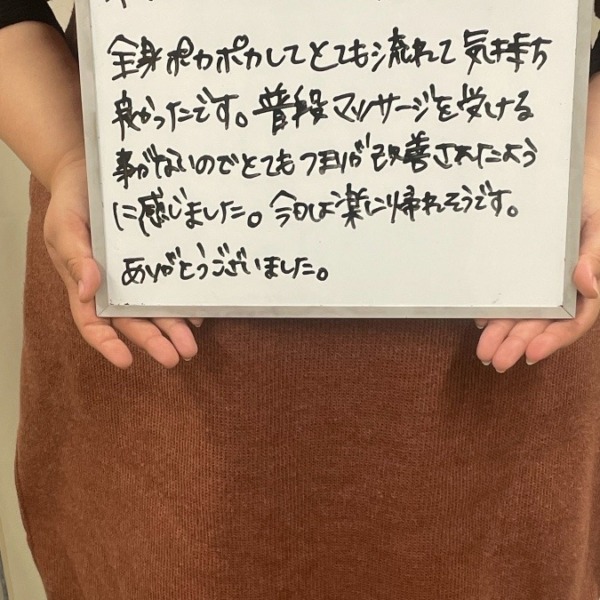 全身ポカポカしてとても流れて気持ち
良かったです。普段マッサージを受ける
事がないのでとてもつまりが改善されたよう
に感じました。今日は楽に帰れそうです。
ありがとうございました。